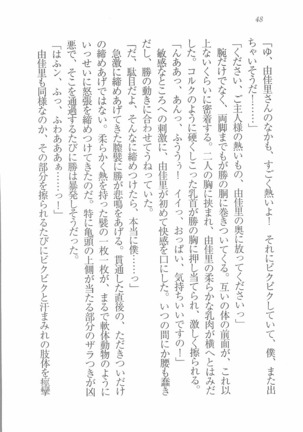 48
「ゆ、由佳里さんのなかも、すごく熱いよ！　それにビクビクしていて、僕、また出
ちゃいそうだ！……」
「ください、ご主人様の熱いもの、由佳里の奥に放ってくださいっ」
腕だけでなく、両脚までもが勝の胴に巻きついてくる。互いの体の前面が、これ以
上ないくらいに密着する。二人の胸に挟まれ、由佳里の柔らかな乳肉が横へとはみだ
す。コルクのように硬くしこった乳首が勝の胸に押し当てられ、激しく擦れる。
「んああっ、あんっ、ふううぅ！　イイっ、おっぱい、気持ちいいですの！」
敏感なところへの刺激に、由佳里が初めて快感を口にした。いつの間にか腰も蠢き
だし、勝の動きに合わせてうねっていた。
「だ、駄目だよ、そんなに締めつけたら、本当に僕……っ」
急激に締めあげてきた膣襞に勝が悲鳴をあげる。貫通した直後の、ただきついだけ
の締めあげではない。柔らかく、熱を持った襞の一枚一枚が、まるで軟体動物のように
いっせいに怒張を締めつけてきたのだ。特に亀頭の上側が当たる部分のザラつきが凶
悪で、そこを通過するたびに勝は暴発しそうだった。
「はふん、ふっ、ふわあああぁっ！」
由佳里も同様なのか、その部分を擦られるたびにビクビクと汗まみれの肢体を痙攣